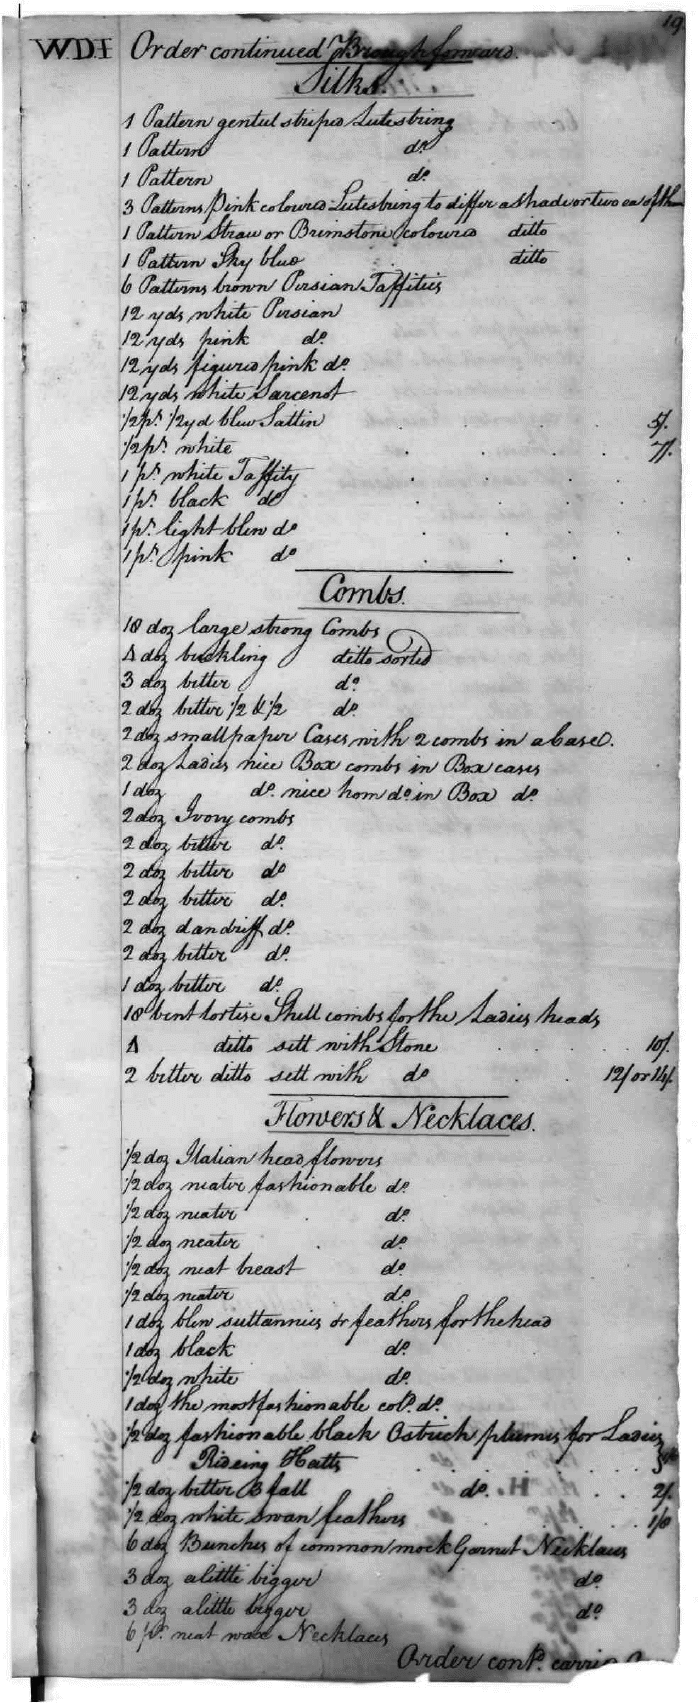 19
WDI Order continued Brought forward.
Silks.
1 Pattern genteel striped Lutestring
1 Pattern do
1 Pattern do
3 Patterns Pink coloured Lutestring to differ a shade or two ea of them
1 Pattern Straw or Brimstone coloured ditto
1 Pattern Sky blue ditto
6 Patterns brown Persian Taffities
12 yds white Persian
12 yds pink do.
12 yds figured pink do.
12 yds white Sarcenot
1/2 ps. 1/2 yd blue Sattin 5/.
1/2 ps. white 7/.
1 ps. white Taffity
1 ps. black do
1 ps. light blew do
1 ps. pink do
Combs.
18 doz large strong Combs
4 doz buckling ditto sorted
3 doz better do.
2 doz better 1/2 & 1/2 do.
2 doz small paper Cases with 2 combs in a Case.
2 doz Ladies nice Box combs in Box cases
1 doz do. nice horn do. in Box do.
2 doz Ivory combs
2 doz better do.
2 doz better do
2 doz better do.
2 doz dandriff do.
2 doz better do.
1 doz better do.
18 bent tortise Shell combs for the Ladies heads
4 ditto sett with Stone 10/.
2 better ditto sett with do 12/ or 14/.
Flowers & Necklaces.
1/2 doz Italian head flowers
1/2 doz neater fashionable do.
1/2 doz neater do.
1/2 doz neater do.
1/2 doz neat breast do.
1/2 doz neater do.
1 doz blew sultannies or feathers for the head
1 doz black do.
1/2 doz white do.
1 doz the most fashionable cold. do.
1/2 doz fashionable black Ostrich plumes for Ladies
Rideing Hatts
1/2 doz better B fall do. 2/.
1/2 doz white swan feathers 1/8
6 doz Bunches of common mock Garnet Necklaces
3 doz a little bigger do
3 doz a little bigger do
6 ps. neat wax Necklaces
Order cond. carried